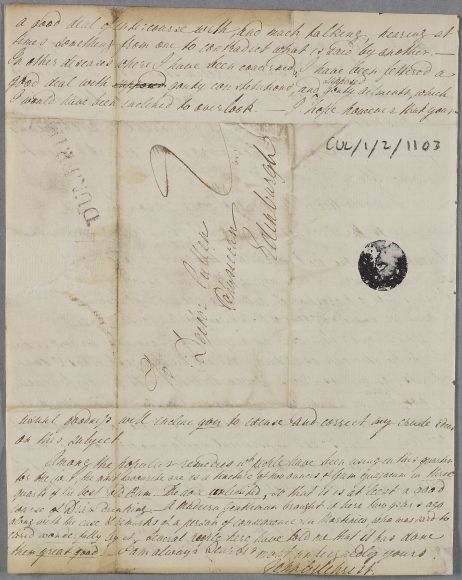 a good deal of intercourse with, and much talking, hearing at
times something from one to contradict what is said by another. —
In other diseases where I have been concerned, I have been fettered a
good deal with gouty constitutions, and gouty ailments, which
I would have been enclined to overlook. — I hope however that your
CUL/1/2/1103
DUMFRIES
To
Doctor Cullen
Physician
Edinburgh
usual goodness will incline you to excuse and correct my crude ideas
on this subject.
Among the popular remedies people have been using in this quarter
for the gout, the most favourite one is a tincture of two ounces of Gum Guaiacum in three
quarts of the best old Rum. The dose unlimited, so that it is at least a good
excuse for dram drinking. A Gentleman brought it here two years ago
along with the case & remarks of a person of consequence in Martinico who was hard to
several people here have told me that it has done
them great good. — I am always Dear Sir most respectfully yours
John Gilchrist